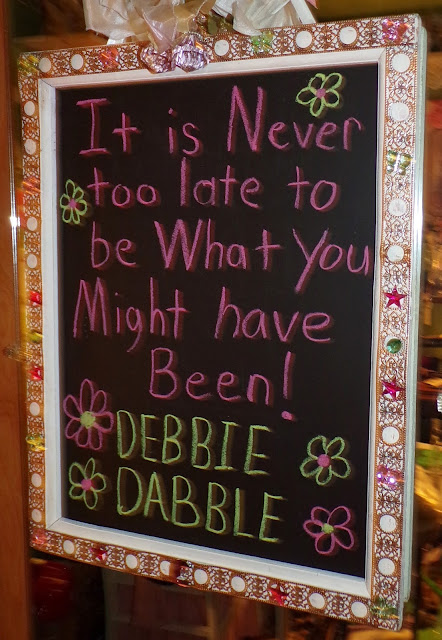 It is Never
too late to
be What You
Might have
Been!
DEBBIE
DABBLE